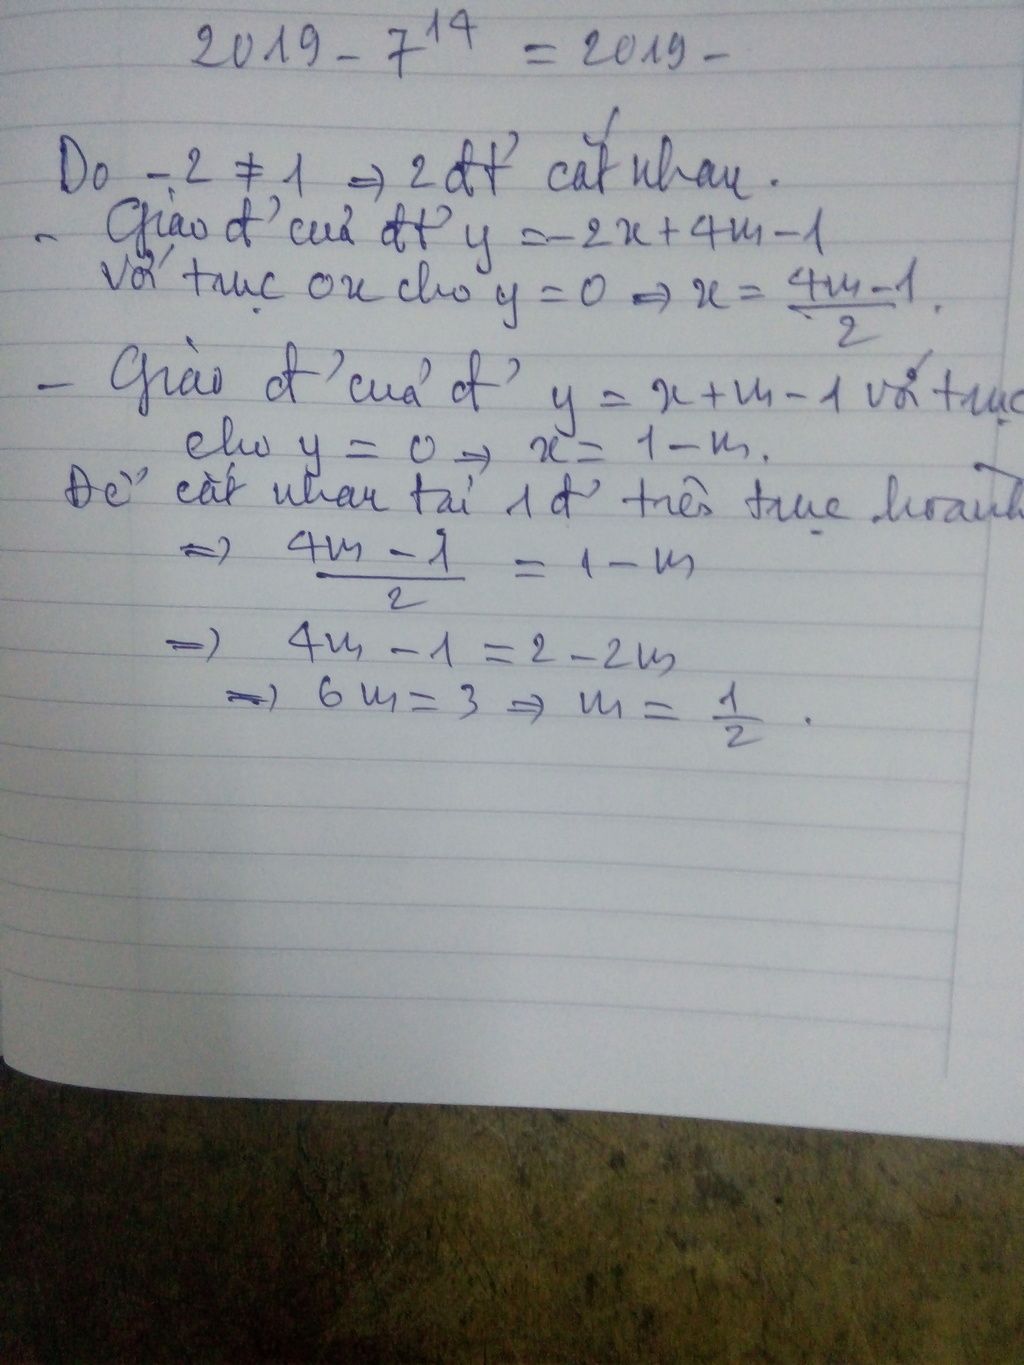 2019 - 7¹⁴ = 2019 -
Do -2 ≠ 1 => 2 đt' cắt nhau.
- Giao đ' của đt' y = -2x + 4m - 1
với trục ox cho y = 0 => x = (4m - 1)/2.
- Giao đ' của đ' y = x + m - 1 với trục
cho y = 0 => x = 1 - m.
Để cắt nhau tại 1 đ' trên trục hoành
=> (4m - 1)/2 = 1 - m
=> 4m - 1 = 2 - 2m
=> 6m = 3 => m = 1/2.